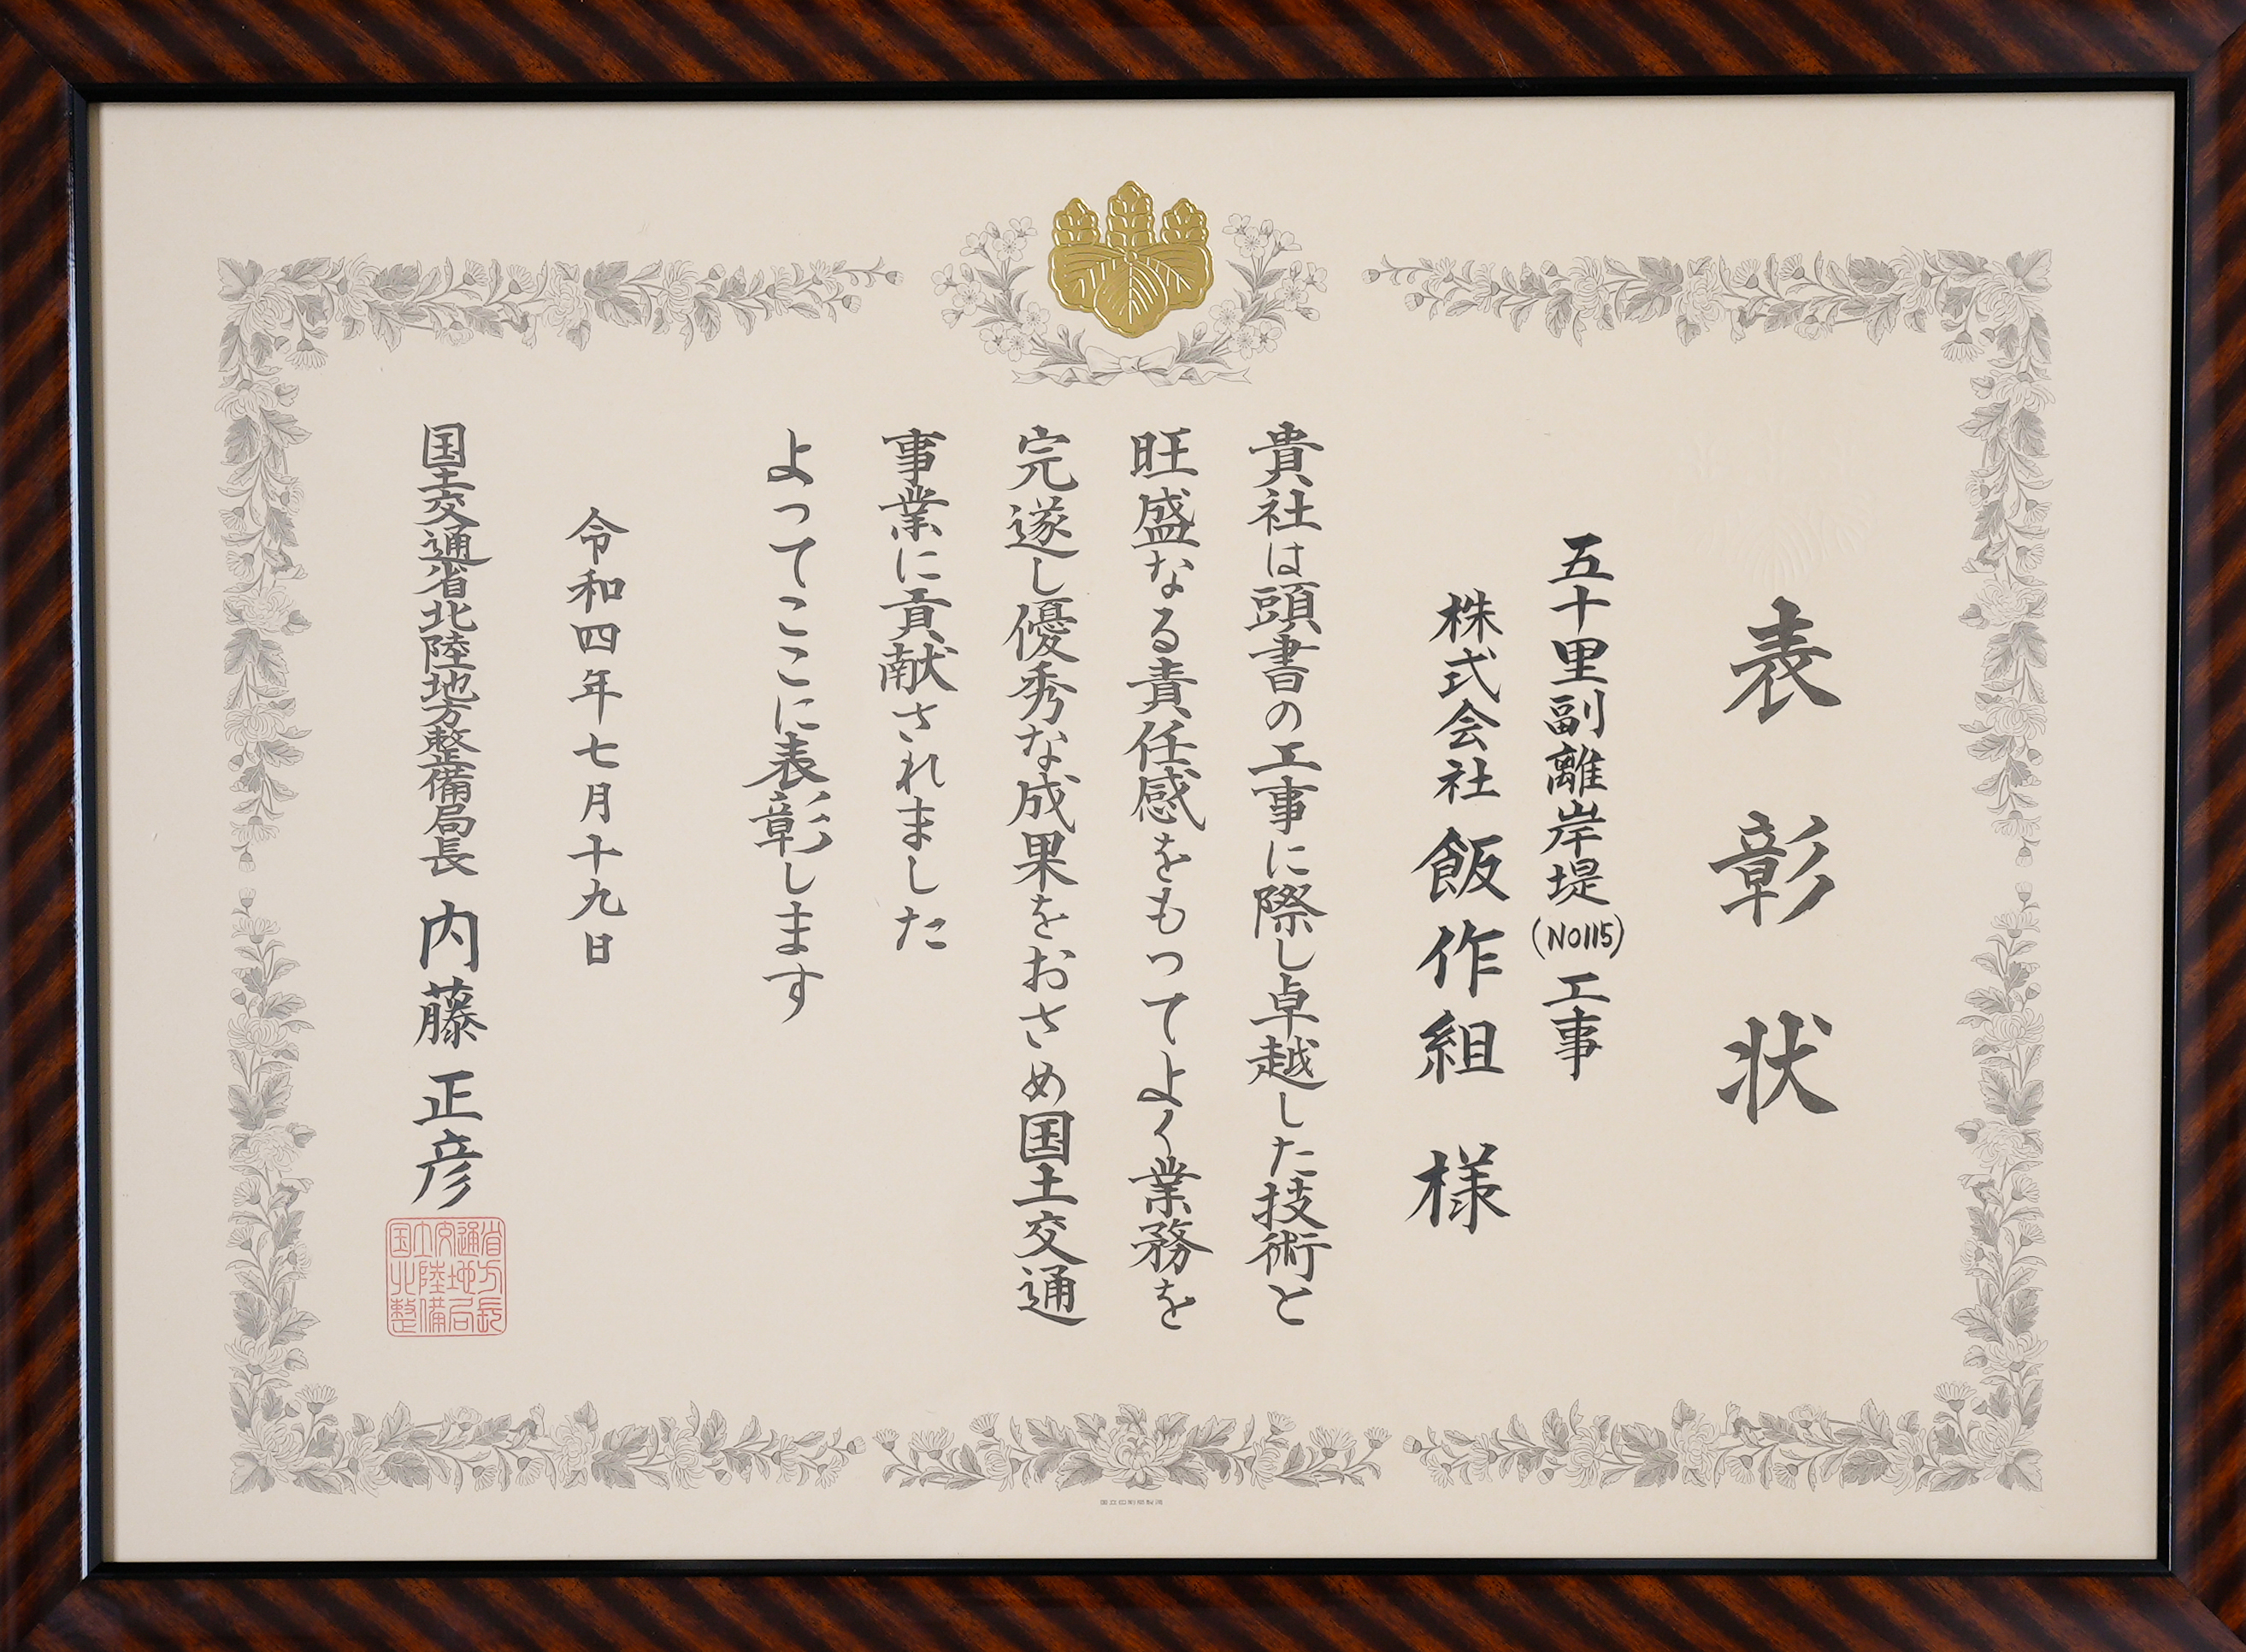 表彰状
五十里副離岸堤(No115)工事
株式会社飯作組様
貴社は頭書の工事に際し卓越した技術と
旺盛なる責任感をもつてよく業務を
完遂し優秀な成果をおさめ国土交通
事業に貢献されました
よつてここに表彰します
令和四年七月十九日
国土交通省北陸地方整備局長 内藤正彦
国土交通省
北陸地方
整備局長
国立印刷局製造